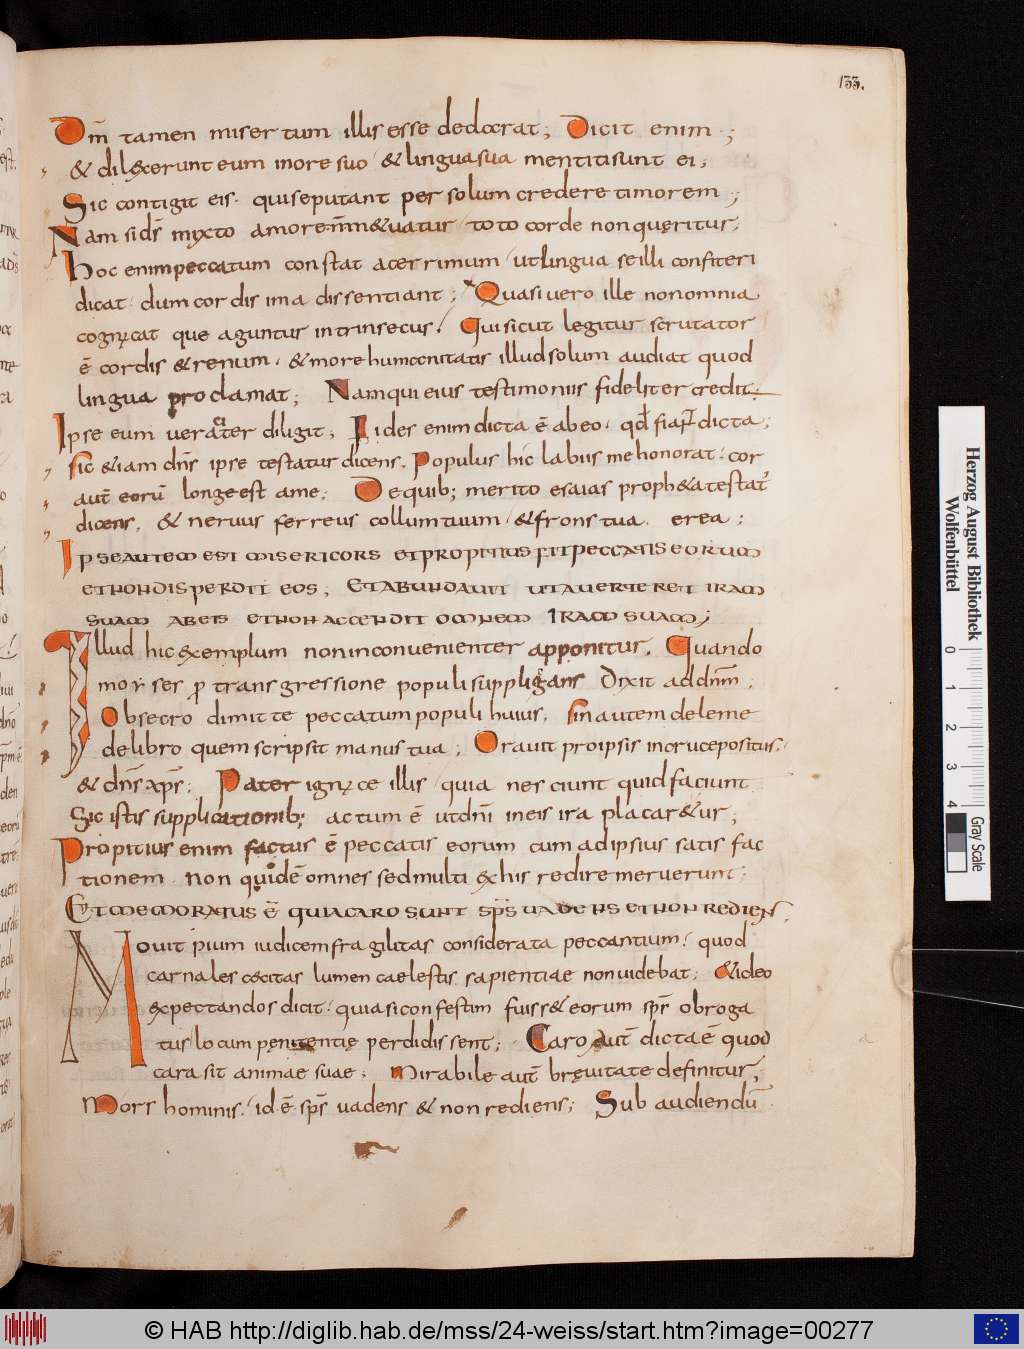 133.
Dm̄ tamen misertum illis esse dedocrat; Dicit enim;
& dilexerunt eum in ore suo / & lingua sua mentiti sunt ei;
Sic contigit eis. qui se putant per solum credere timorem;
Nam si dꝭ mixto amore m̄n&uatur / toto corde non queritur;
Hoc enim peccatum constat acerrimum / ut lingua se illi confiteri
dicat / dum cordis ima dissentiant; Quasi uero ille non omnia
cognoscat que aguntur intrinsecus / Qui sicut legitur scrutator
ē cordis & renum. & more humanitatis illud solum audiat quod
lingua proclamat; Nam qui eius testimoniis fideliter credit.
Ipse eum ueraciter diligit; Fides enim dicta ē ab eo. qd̄ fiant dicta;
sic &iam dn̄s ipse testatur dicens. Populus hic labiis me honorat / cor
aut̄ eorū longe est a me; De quib; merito esaias proph&a testat̄
dicens. & neruus ferreus collum tuum / & frons tua erea;
Ipse autem est misericors et propitius fit peccatis eorum
et non disperdit eos; Et abundauit ut auerteret iram
suam ab eis et non accendit omnem iram suam;
Illud hic exemplum non inconuenienter apponitur. Quando
moyses p transgressione populi suppligans Dixit ad dn̄m;
Obsecro dimitte peccatum populi huius. sin autem dele me
de libro quem scripsit manus tua; Orauit pro ipsis in cruce positus.
& dn̄s xp̄s; Pater ignosce illis / quia nesciunt quid faciunt
Sic istis supplicationib; actum ē ut dn̄i in eis ira placar&ur;
Propitius enim factus ē peccatis eorum cum ad ipsius satisfac
tionem non quidē omnes sed multi ex his redire meruerunt;
Et memoratus ē quia caro sunt sp̄s uadens et non rediens.
Mouit pium iudicem fragilitas considerata peccantium / quod
carnales cecitas lumen caelestis sapientiae non uidebat; & ideo
expectandos dicit / quia si confestim fuiss& eorum sp̄s obroga
tus locum penitentie perdidissent; Caro aut̄ dicta ē quod
cara sit animae suae; Mirabile aut̄ breuitate definitur,
Mors hominis / id ē sp̄s uadens & non rediens; Sub audiendū
Herzog August Bibliothek
Wolfenbüttel
0 1 2 3 4
Gray Scale
© HAB http://diglib.hab.de/mss/24-weiss/start.htm?image=00277